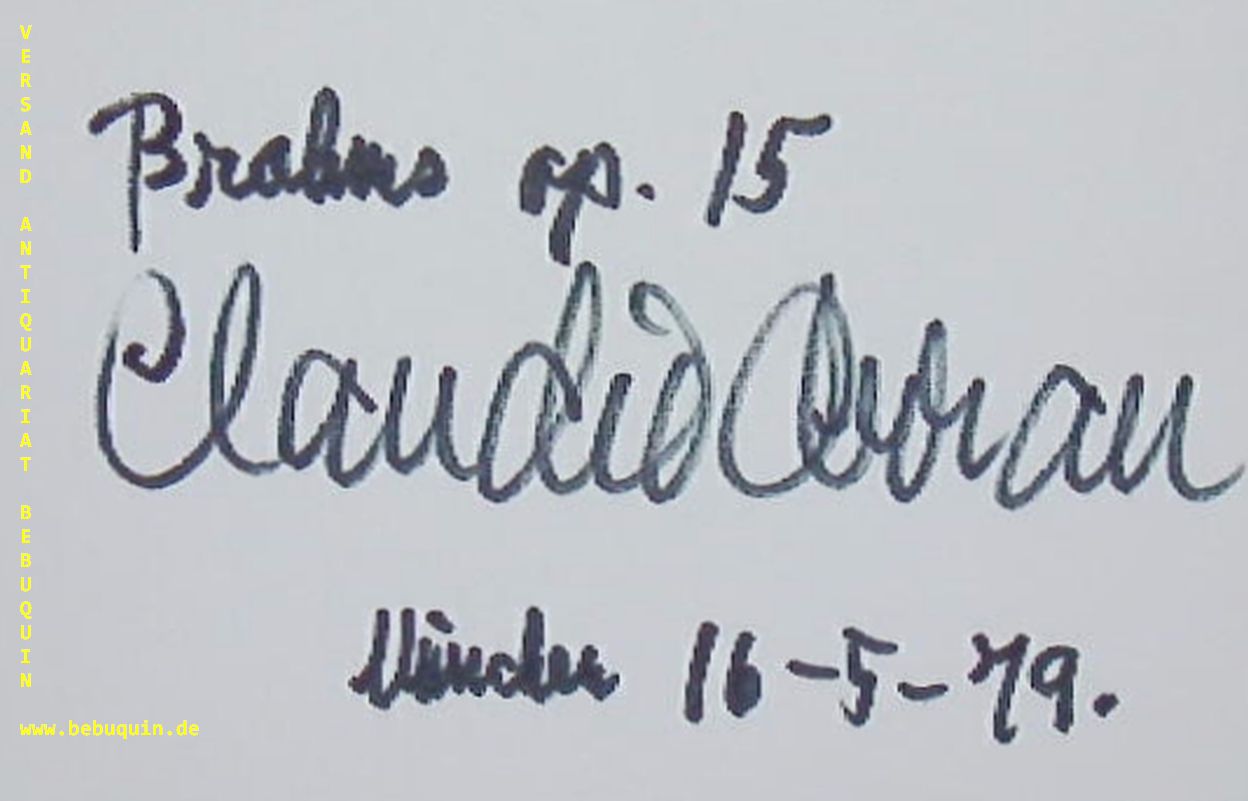 VERSAND ANTIQUARIAT BEBUQUIN
Brahms op. 15
Claudio Arrau
München 16-5-79.
www.bebuquin.de